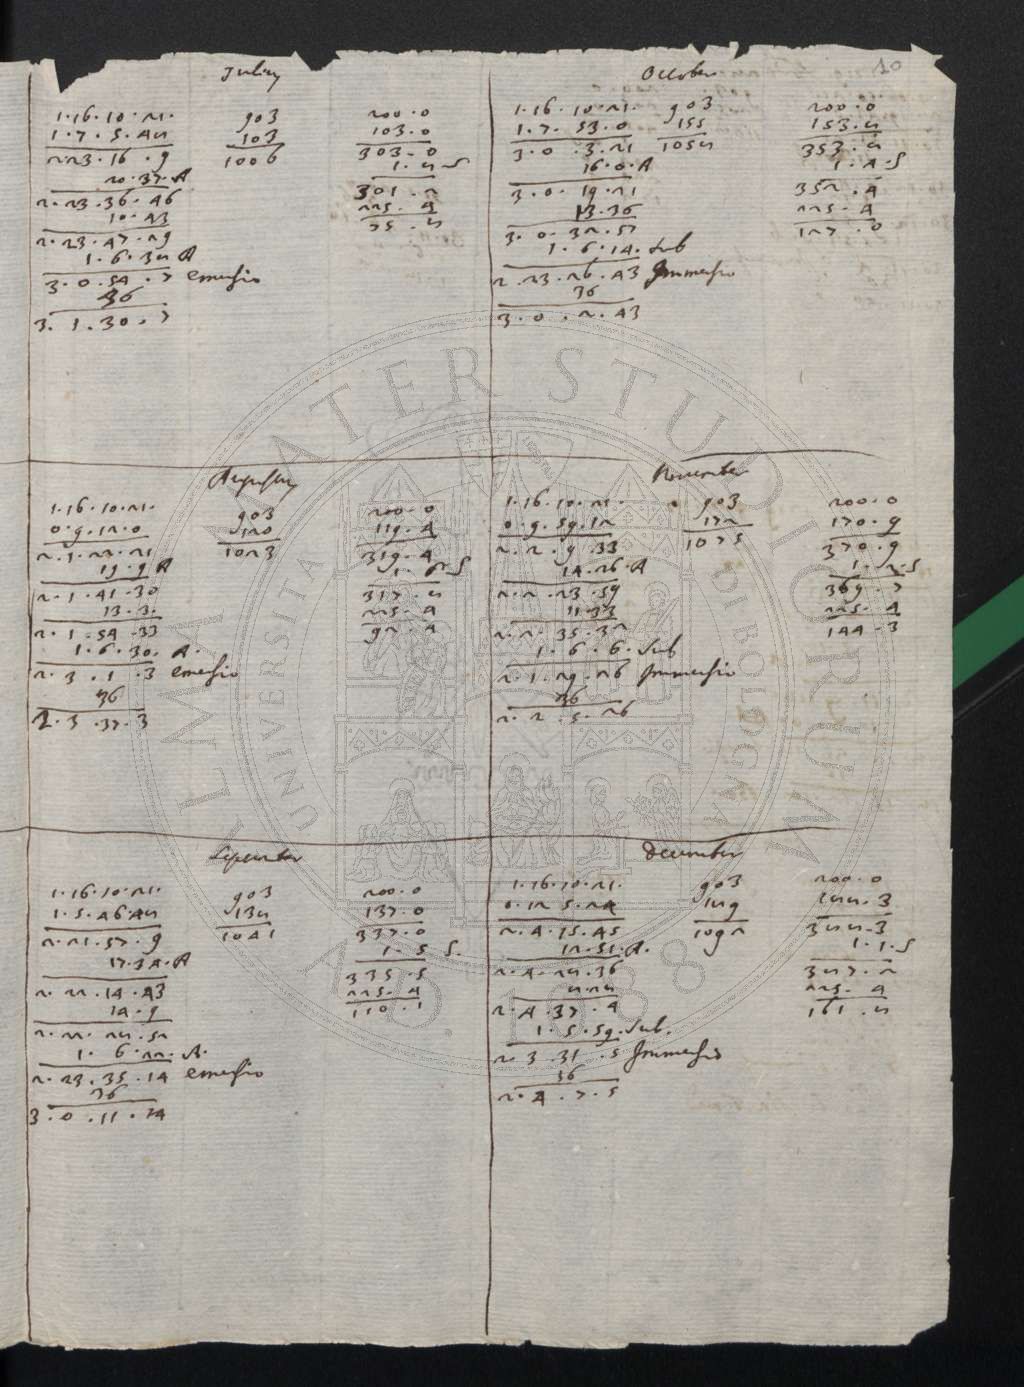 10
Julius
1.16.10.21. 903 200.0
1.7.5.48 103 103.0
2.23.16.9 1006 303.0
20.37.A 1.8 S
2.23.36.46 301.2
10.43 225.4
2.23.47.29 75.8
1.6.38 A
3.0.54.7 emersio
36
3.1.30.7
October
1.16.10.21. 903 200.0
1.7.53.0 155 153.8
3.0.3.21 1058 353.8
16.0.A 1.4.S
3.0.19.21 352.4
13.36 225.4
3.0.32.57 127.0
1.6.14. Sub
2.23.26.43 Immersio
36
3.0.2.43
Augustus
1.16.10.21. 903 200.0
0.9.12.0 120 119.4
2.1.22.21 1023 319.4
19.9 A 1.6.S
2.1.41.30 317.8
13.3. 225.4
2.1.54.33 92.4
1.6.30. A.
2.3.1.3 emersio
36
2.3.37.3
November
1.16.10.21. 903 200.0
0.9.59.12 172 170.9
2.2.9.33 1075 370.9
14.26.A 1.2.S
2.2.23.59 369.7
11.33 225.4
2.2.35.32 144.3
1.6.6. Sub
2.1.29.26 Immersio
36
2.2.5.26
September
1.16.10.21. 903 200.0
1.5.46.48 138 137.0
2.21.57.9 1041 337.0
17.34.A 1.5 S.
2.22.14.43 335.5
14.9 225.4
2.22.28.52 110.1
1.6.22.A.
2.23.35.14 emersio
36
3.0.11.14
December
1.16.10.21. 903 200.0
0.12.5.24 189 188.3
2.4.15.45 1092 388.3
12.51.A. 1.1.S
2.4.28.36 387.2
8.28 225.4
2.4.37.4 161.8
1.5.59. Sub.
2.3.31.5 Immersio
36
2.4.7.5
ALMA MATER STUDIORUM
UNIVERSITÀ DI BOLOGNA
A.D. 1088